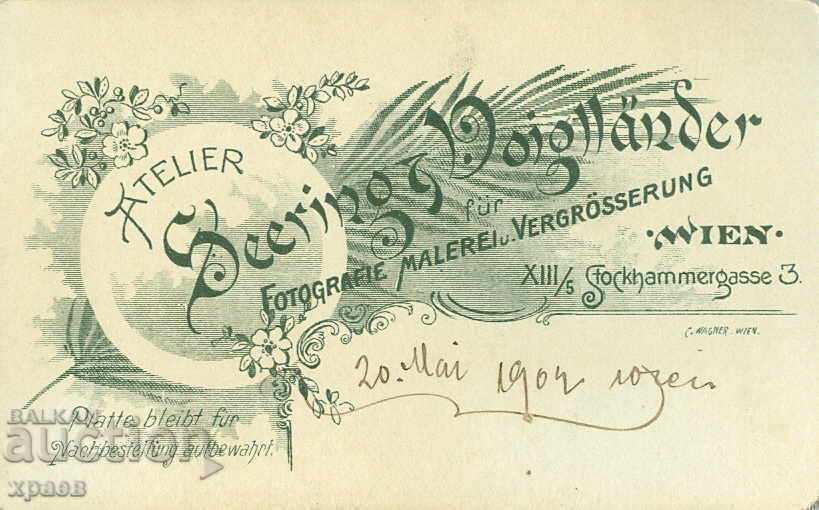 ATELIER
Seering & Voigtländer
für
FOTOGRAFIE MALEREI u. VERGRÖSSERUNG
·WIEN·
XIII/5 Stockhammergasse 3.
C. WAGNER. WIEN.
20. Mai 1904
Platte bleibt für
Nachbestellung aufbewahrt.
BALKAN
auction
храов